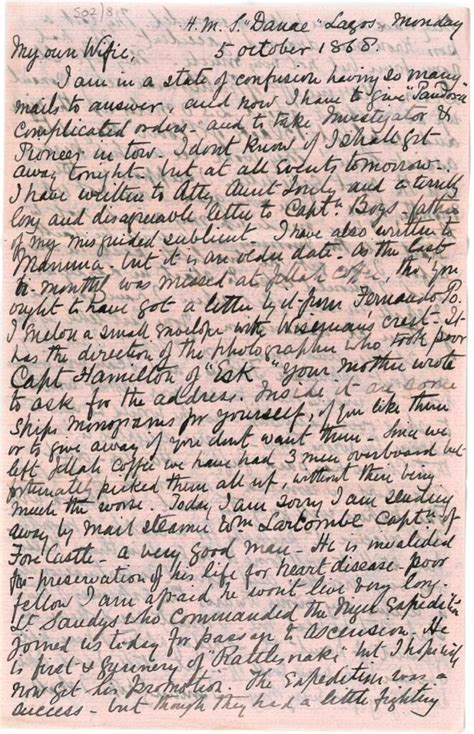 502/818
H.M.S. "Danae" Lagos. Monday
My own Wifie, 5 October 1868
I am in a state of confusion having so many
mails to answer, and now I have to give "Pandora"
Complicated orders - and to take Investigator &
Pioneer in tow. I dont know if I shall get
away tonight - but at all Events tomorrow -
I have written to Atty Aunt and a terribly
long and disagreeable letter to Captn Boys - father
of my misguided sublieut. I have also written to
Mamma - but it is an older date - As the last
bi-monthly was missed at Jellah Coffee, tho you
ought to have got a letter by it from Fernando Po.
I enclose a small Envelope with Wiseman's crest - It
has the direction of the photographer who took poor
Capt Hamilton of "Esk" Your Mother wrote
to ask for the address. Inside it are some
Ships Monograms for yourself, if you like them
or to give away if you dont want them - Since we
left Jellah Coffee we have had 3 men overboard but
fortunately picked them all up, without their being
much the worse. Today I am sorry I am sending
away by mail steamer Wm Larcombe Captn of
Fore Castle - a very good man - He is invalided
for preservation of his life for heart disease - poor
fellow I am afraid he wont live very long.
Lt Sandys who commanded the Niger Expedition
joined us today for passage to Ascension. He
is first & Gunnery of "Rattlesnake" but I hope will
now get his promotion. The Expedition was a
success - but though they had a little fighting